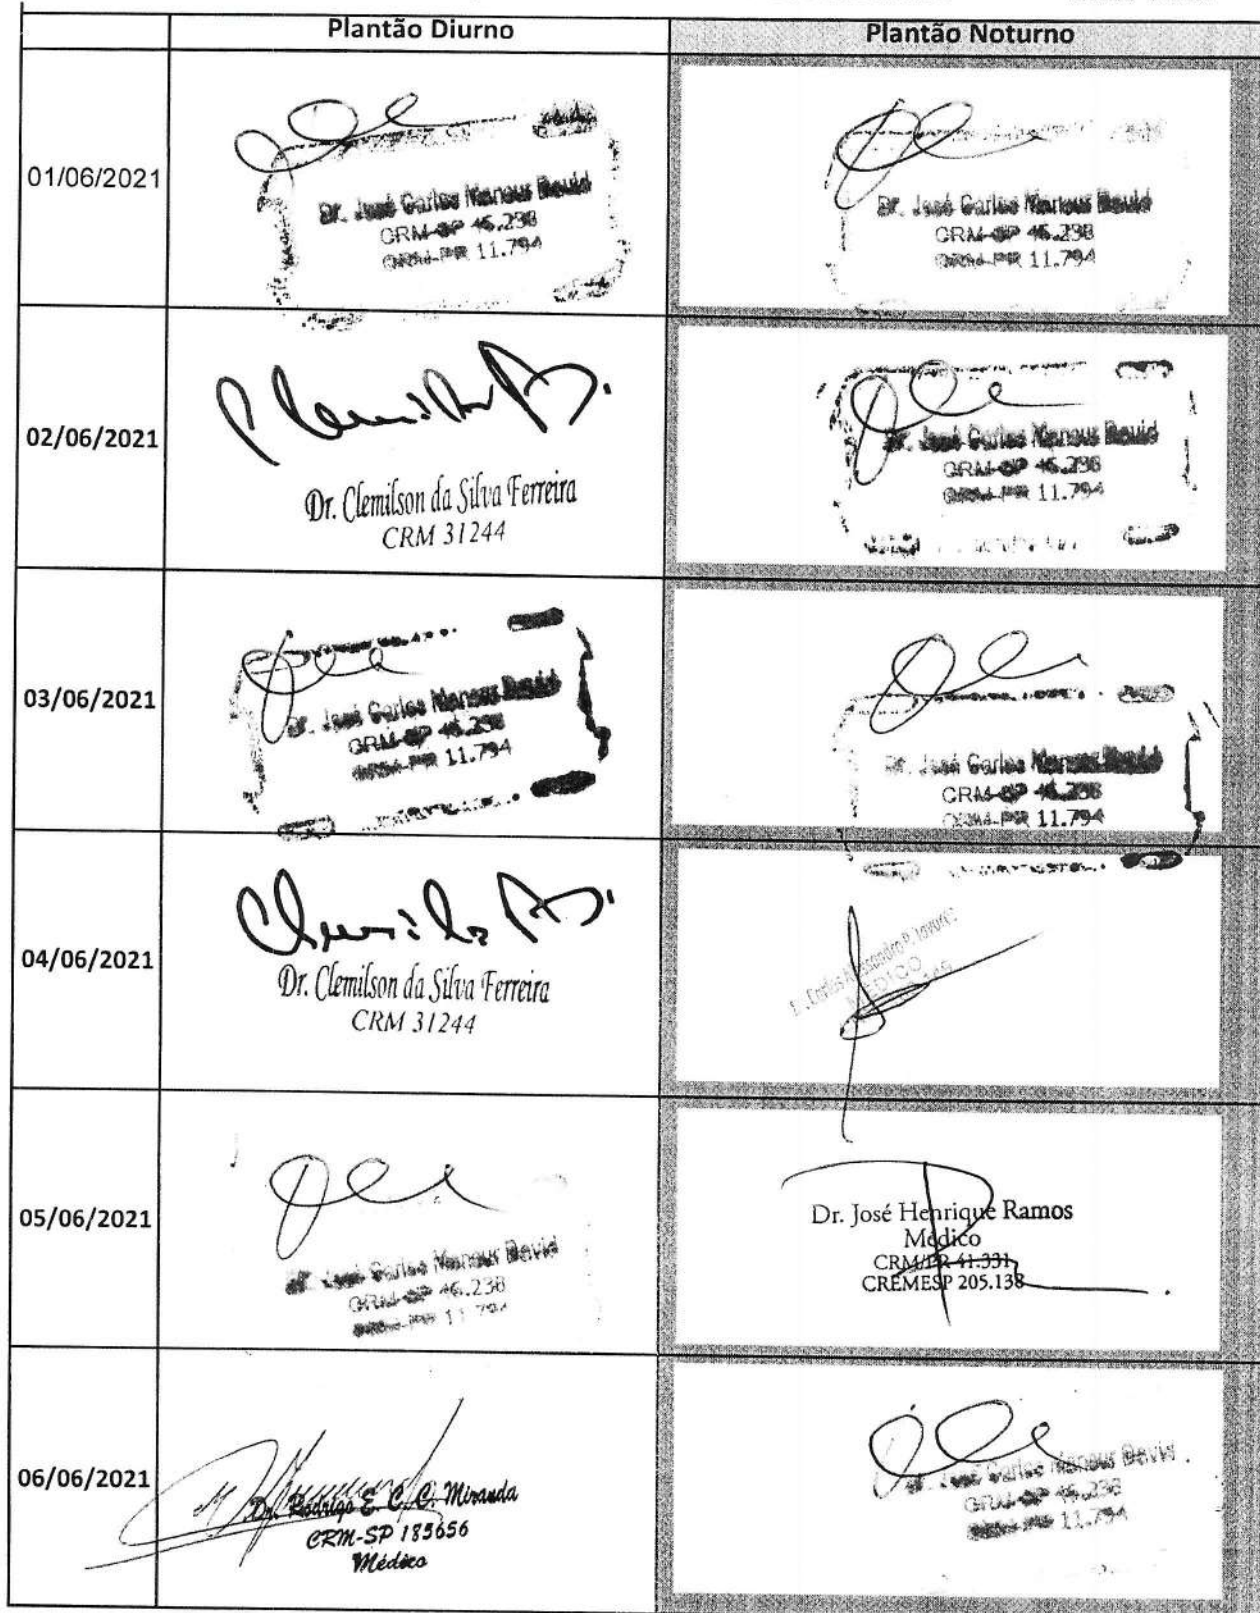 Plantão Diurno
Plantão Noturno
01/06/2021
Dr. José Carlos Mansur David
CRM-SP 46.238
CRM-PR 11.794
Dr. José Carlos Mansur David
CRM-SP 46.238
CRM-PR 11.794
02/06/2021
Dr. Clemilson da Silva Ferreira
CRM 31244
Dr. José Carlos Mansur David
CRM-SP 46.238
CRM-PR 11.794
03/06/2021
Dr. José Carlos Mansur David
CRM-SP 46.238
CRM-PR 11.794
Dr. José Carlos Mansur David
CRM-SP 46.238
CRM-PR 11.794
04/06/2021
Dr. Clemilson da Silva Ferreira
CRM 31244
MEDICO
05/06/2021
Dr. José Carlos Mansur David
CRM-SP 46.238
CRM-PR 11.794
Dr. José Henrique Ramos
Médico
CRM/PR 41.331
CREMESP 205.138
06/06/2021
Dr. Rodrigo E. C. C. Miranda
CRM-SP 183656
Médico
Dr. José Carlos Mansur David
CRM-SP 46.238
CRM-PR 11.794